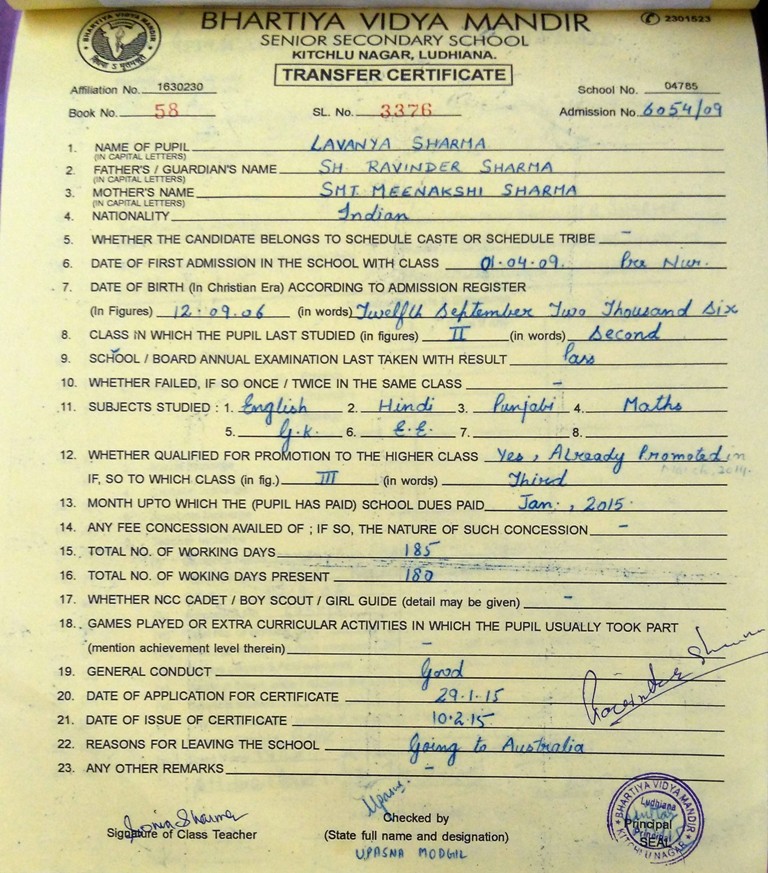 BHARTIYA VIDYA MANDIR
✆ 2301523
SENIOR SECONDARY SCHOOL
KITCHLU NAGAR, LUDHIANA.
TRANSFER CERTIFICATE
Affiliation No. 1630230 School No. 04785
Book No. 58 SL. No. 3376 Admission No. 6054/09
1. NAME OF PUPIL LAVANYA SHARMA
(IN CAPITAL LETTERS)
2. FATHER'S / GUARDIAN'S NAME SH. RAVINDER SHARMA
(IN CAPITAL LETTERS)
3. MOTHER'S NAME SMT. MEENAKSHI SHARMA
(IN CAPITAL LETTERS)
4. NATIONALITY Indian
5. WHETHER THE CANDIDATE BELONGS TO SCHEDULE CASTE OR SCHEDULE TRIBE –
6. DATE OF FIRST ADMISSION IN THE SCHOOL WITH CLASS 01.04.09. Pre Nur.
7. DATE OF BIRTH (In Christian Era) ACCORDING TO ADMISSION REGISTER
(In Figures) 12.09.06 (in words) Twelfth September Two Thousand Six
8. CLASS IN WHICH THE PUPIL LAST STUDIED (in figures) II (in words) Second
9. SCHOOL / BOARD ANNUAL EXAMINATION LAST TAKEN WITH RESULT Pass
10. WHETHER FAILED, IF SO ONCE / TWICE IN THE SAME CLASS –
11. SUBJECTS STUDIED : 1. English 2. Hindi 3. Punjabi 4. Maths
5. G.K. 6. E.E. 7. 8.
12. WHETHER QUALIFIED FOR PROMOTION TO THE HIGHER CLASS Yes, Already Promoted in
March, 2014.
IF, SO TO WHICH CLASS (in fig.) III (in words) Third
13. MONTH UPTO WHICH THE (PUPIL HAS PAID) SCHOOL DUES PAID Jan., 2015.
14. ANY FEE CONCESSION AVAILED OF ; IF SO, THE NATURE OF SUCH CONCESSION –
15. TOTAL NO. OF WORKING DAYS 185
16. TOTAL NO. OF WOKING DAYS PRESENT 180
17. WHETHER NCC CADET / BOY SCOUT / GIRL GUIDE (detail may be given) –
18. GAMES PLAYED OR EXTRA CURRICULAR ACTIVITIES IN WHICH THE PUPIL USUALLY TOOK PART
(mention achievement level therein) –
19. GENERAL CONDUCT Good
20. DATE OF APPLICATION FOR CERTIFICATE 29.1.15
Ravinder Sharma
21. DATE OF ISSUE OF CERTIFICATE 10.2.15
22. REASONS FOR LEAVING THE SCHOOL Going to Australia
23. ANY OTHER REMARKS –
Sonia Sharma
Signature of Class Teacher
Checked by
(State full name and designation)
UPASNA MODGIL
BHARTIYA VIDYA MANDIR
Ludhiana
Principal
Principal
SEAL
KITCHLU NAGAR